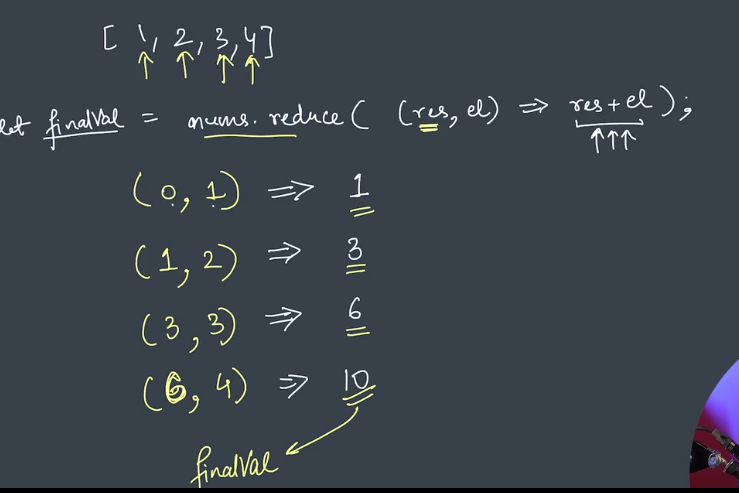 [ 1, 2, 3, 4]
let finalVal = nums.reduce( (res, el) => res+el );
(0, 1) => 1
(1, 2) => 3
(3, 3) => 6
(6, 4) => 10
finalVal